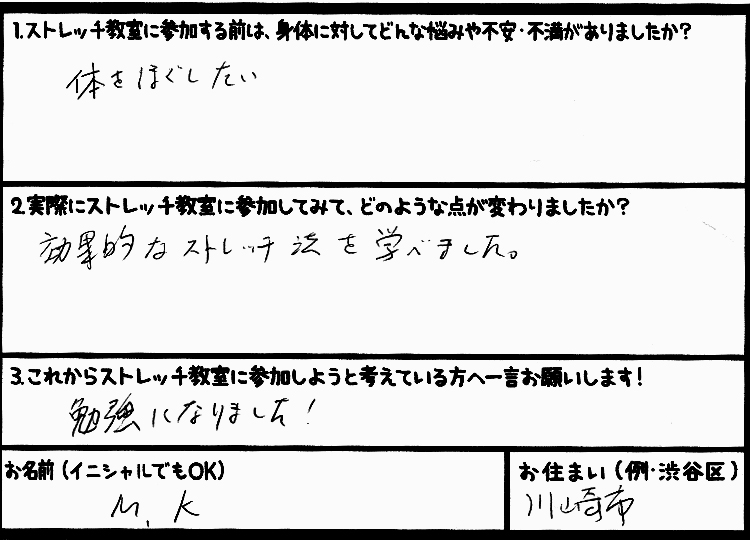 1.ストレッチ教室に参加する前は、身体に対してどんな悩みや不安・不満がありましたか?
体をほぐしたい
2.実際にストレッチ教室に参加してみて、どのような点が変わりましたか?
効果的なストレッチ法を学べました。
3.これからストレッチ教室に参加しようと考えている方へ一言お願いします!
勉強になりました!
お名前(イニシャルでもOK)
M.K
お住まい(例・渋谷区)
川崎市